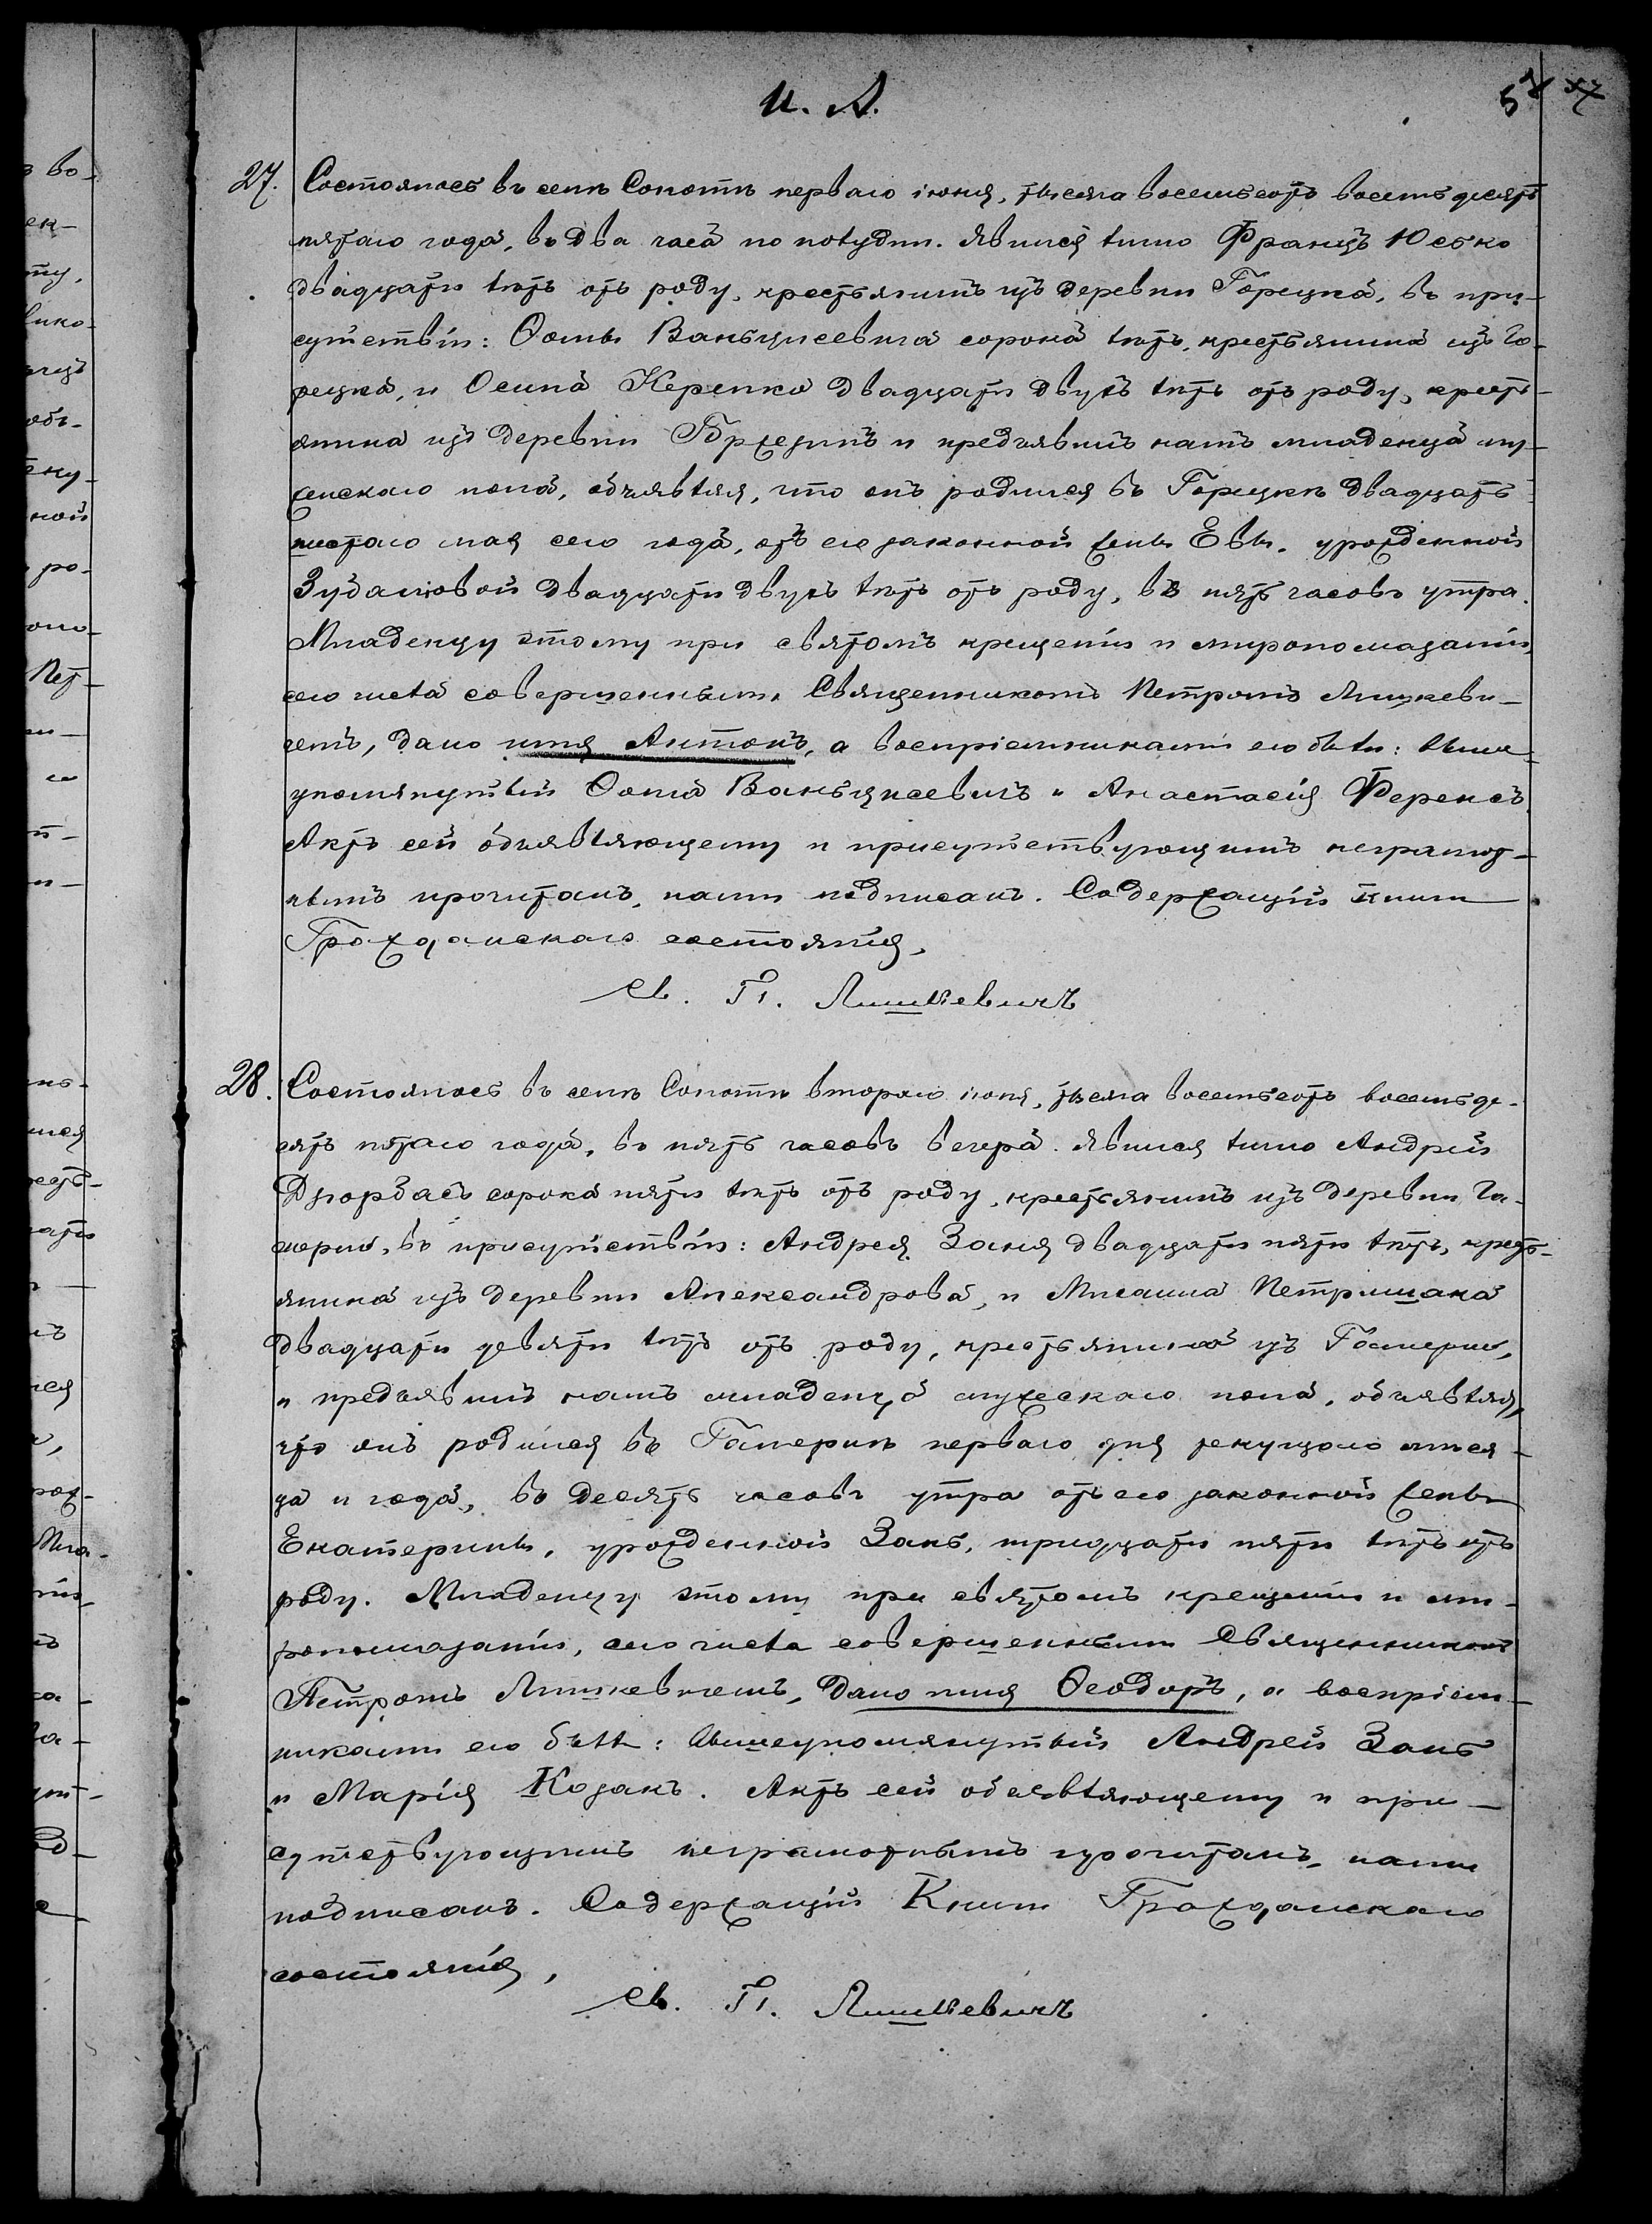 И. А.
27. Состоялось въ селѣ Сопотѣ перваго іюня, тысяча восемьсотъ восемьдесятъ
пятаго года, въ два часа по полудни. Явился лично Францъ Юсько
двадцати лѣтъ отъ роду, крестьянинъ изъ деревни Горецка, въ при-
сутствіи: Ѳомы Ваньцисевича сорока лѣтъ, крестьянина изъ Го-
рецка, и Осипа Керепко двадцати двухъ лѣтъ отъ роду, кресть-
янина изъ деревни Бржезинъ и предъявилъ намъ младенца му-
жескаго пола, объявляя, что онъ родился въ Горецкѣ двадцать
шестаго мая сего года, отъ его законной жены Евы, урожденной
Зубаловой двадцати двухъ лѣтъ отъ роду, въ пять часовъ утра.
Младенцу этому при святомъ крещеніи и мѵропомазаніи,
сего числа совершенныхъ Священникомъ Петромъ Лишкеви-
чемъ, дано имя Антонъ, а воспріемниками его были: выше-
упомянутый Ѳома Ваньцисевичъ и Анастасія Ференсъ.
Актъ сей объявляющему и присутствующимъ неграмот-
нымъ прочитанъ, нами подписанъ. Содержащій книги
Гражданскаго состоянія,
Св. П. Лишкевичъ
28. Состоялось въ селѣ Сопотѣ втораго іюня, тысяча восемьсотъ восемьде-
сятъ пятаго года, въ пять часовъ вечера. Явился лично Андрей
Дзюрбась сорока пяти лѣтъ отъ роду, крестьянинъ изъ деревни Га-
мерни, въ присутствіи: Андрея Заня двадцати пяти лѣтъ, кресть-
янина изъ деревни Александрова, и Михаила Петришака
двадцати девяти лѣтъ отъ роду, крестьянина изъ Гамерни,
и предъявилъ намъ младенца мужескаго пола, объявляя,
что онъ родился въ Гамернѣ перваго дня текущаго мѣся-
ца и года, въ десять часовъ утра отъ его законной жены
Екатерины, урожденной Зань, тридцати пяти лѣтъ отъ
роду. Младенцу этому при святомъ крещеніи и мѵ-
ропомазаніи, сего числа совершенныхъ Священникомъ
Петромъ Лишкевичемъ, дано имя Ѳеодоръ, а воспріем-
никами его были: вышеупомянутый Андрей Зань
и Марія Козакъ. Актъ сей объявляющему и при-
сутствующимъ неграмотнымъ прочитанъ, нами
подписанъ. Содержащій Книги Гражданскаго
состоянія,
Св. П. Лишкевичъ